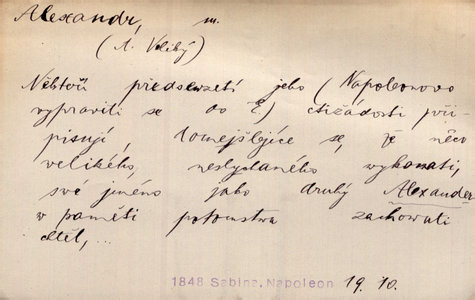 Alexandr, m.
(A. Veliký)
Někteří předsevzetí jeho (Napoleonovo
vypraviti se do E) ctižádosti při-
pisují, se, že něco
velikého, neslýchaného vykonati,
své jméno jako druhý Alexander
w paměti potomstva zachowati
chtěl,...
1848 Sabina, Napoleon 19. 10.